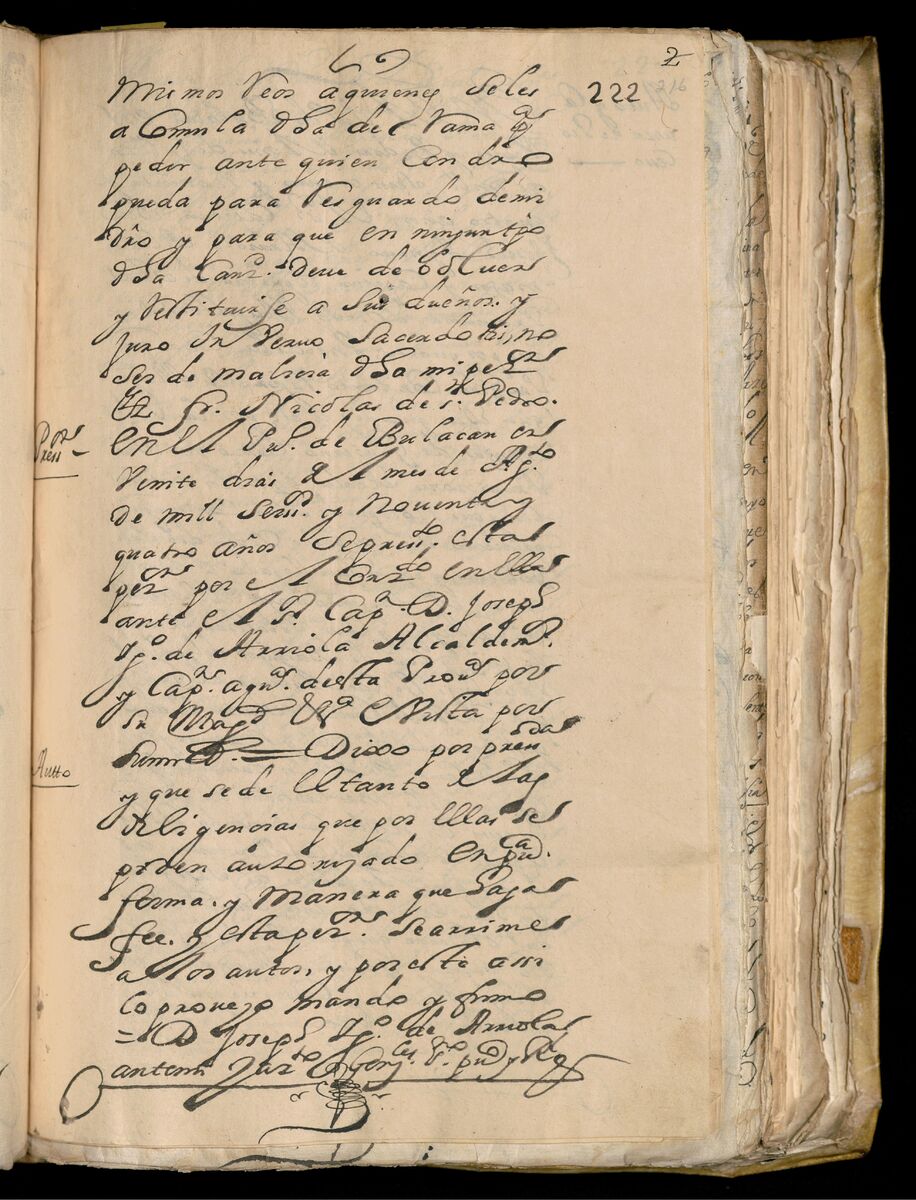 2
222
Mismos Reos aquienes seles
acomula dha del Rama q
pedir ante quien Con dro
pueda para Resguardo demi
dro y para que en ningun tpo
dha Cant. deve de bolver
y Restituirse a sus dueños. y
juro In Vervo Sacerdotis, no
ser de malicia dha mi petn
Etz fr. Nicolas de sn. Pedro.
Por
Press
En el Pu. de Bulacan en
Veinte dias del mes de Agto
de mill seisd. y Noventa y
quatro años se presdo. esta
petn por el Contdo en ella
ante el Sr. Capn. D. Joseph
Ygo. de Arriola Alcalde mr.
y Capn. a gua. desta Prova por
su Magd Va Vista por
su mrd. = Dixo por presdas
Autto
y que se de el tanto de las
diligencias que por ellas se
piden autorizado En puca.
forma. y Manera que haga
fee. y esta petn. se arrime
a los autos, y por este assi
lo proveyo mando y firmo
= D Joseph Ygo. de Arriola
antemi